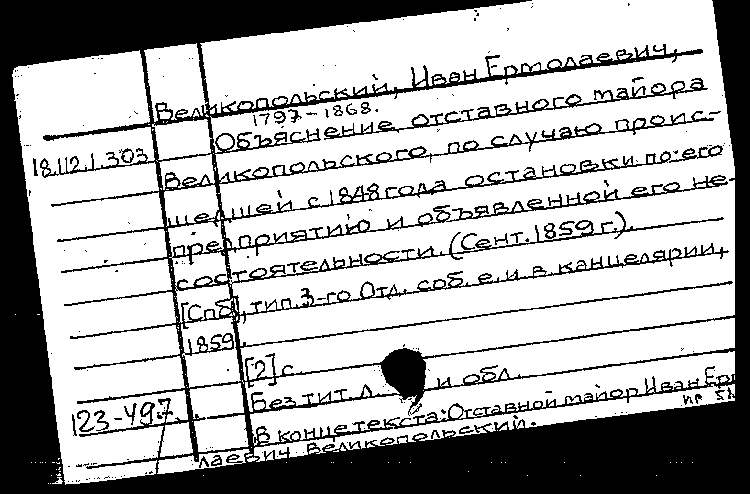 Великопольский, Иван Ермолаевич,
1797-1868.
Объяснение отставного майора
18.112.1.303
Великопольского, по случаю проис-
шедшей с 1848 года остановки по его
предприятию и объявленной его не-
состоятельности. (Сент. 1859 г.).
[Спб], тип. 3-го Отд. соб. е. и в. канцелярии,
1859.
[2] с.
Без тит. л. и обл.
123-497
В конце текста: Отставной майор Иван Ерм
лаевич Великопольский.